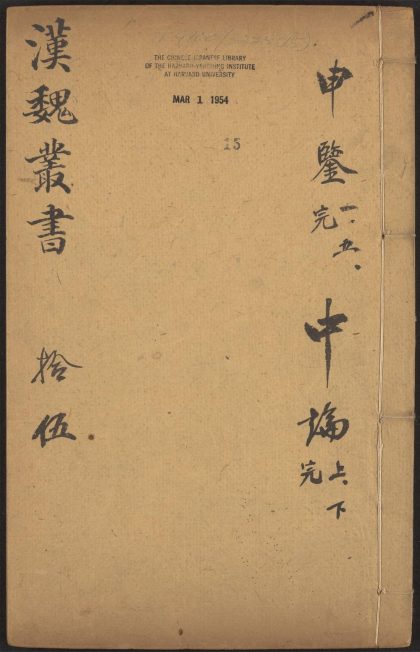 申鑒 一、五、完
中論 上、下完
漢魏叢書 拾伍
THE CHINESE-JAPANESE LIBRARY
OF THE HARVARD-YENCHING INSTITUTE
AT HARVARD UNIVERSITY
MAR 1 1954
15